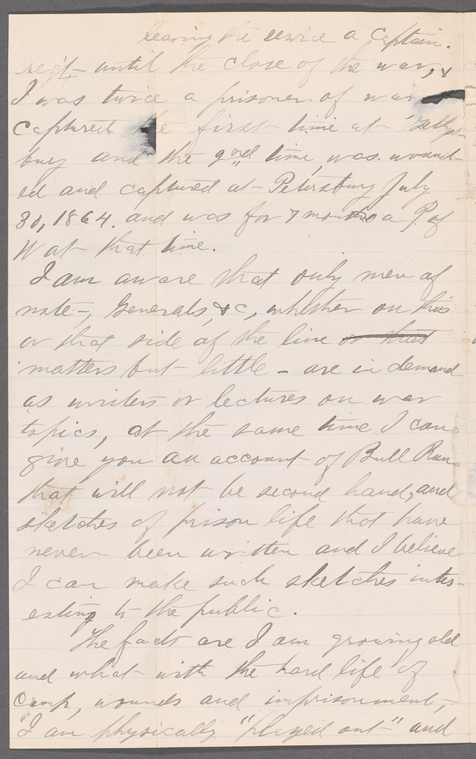 leaving the service a Captain.
regt— until the close of the war, &
I was twice a prisoner of war
captured the first time at Gettys-
burg and the 2nd time, was wound-
ed and captured at Petersburg July
30, 1864. and was for 7 months a P. of
W at that time.
I am aware that only men of
note—, Generals, &c, whether on this
or that side of the line or that
matters but little — are in demand
as writers or lectures on war
topics, at the same time I can
give you an account of Bull Run
that will not be second hand, and
sketches of prison life that have
never been written and I believe
I can make such sketches inter-
esting to the public.
The facts are I am growing old
and what with the hard life of
Camp, wounds and imprisonment,
I am physically "played out" and